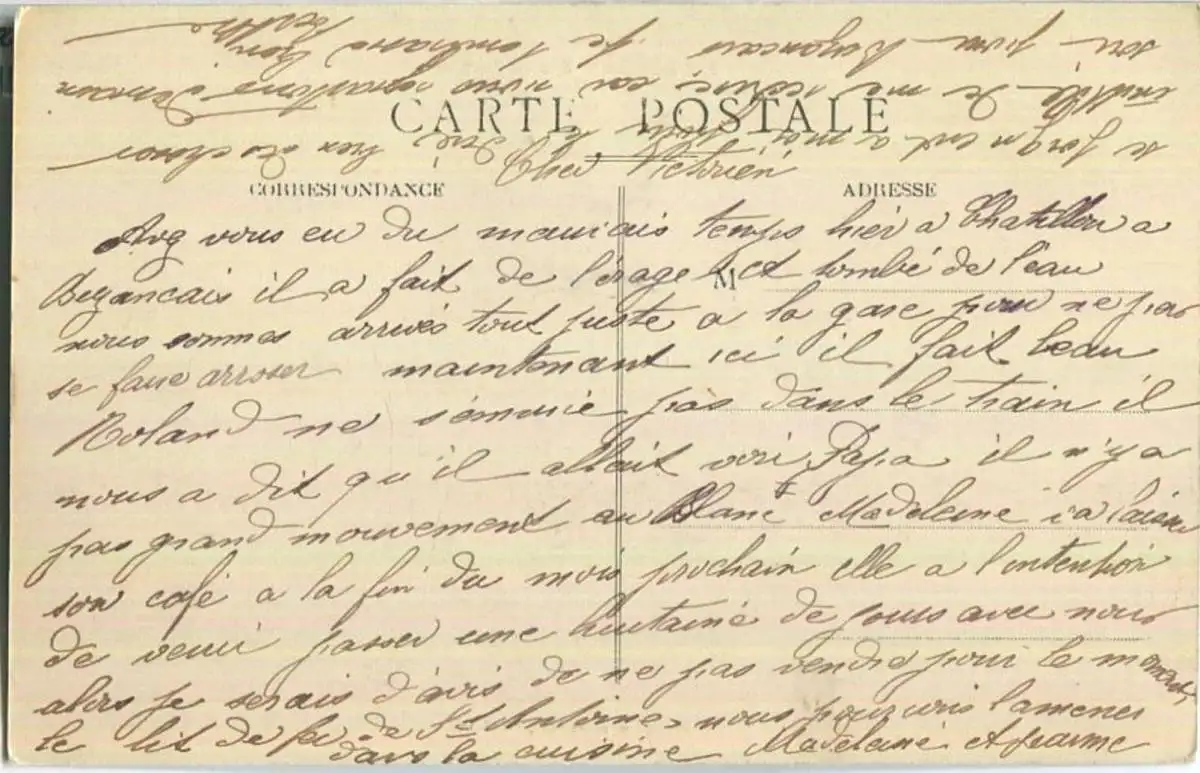 CARTE POSTALE
CORRESPONDANCE
ADRESSE
M
Cher Victorien
Avez vous eu du mauvais temps hier a Chatillon a
Buzancais il a fait de l'orage et tombé de l'eau
nous sommes arrivés tout juste a la gare pour ne pas
se faire arroser maintenant ici il fait beau
Roland ne s'ennuie pas dans le train il
nous a dit qu'il allait voir Papa il n'y a
pas grand mouvement au Blanc Madeleine
son café a la fin du mois prochain elle a l'intention
de venir passer une huitaine de jours avec nous
alors je serais d'avis de ne pas vendre pour le moment
le lit de fer de St Antoine, nous pourrions l'amener
dans la cuisine Madeleine et Jeanne
se joignent a moi pour te dire bien des choses
inutile de me car nous repartirons demain
soir pour Buzancais je t'embrasse bien